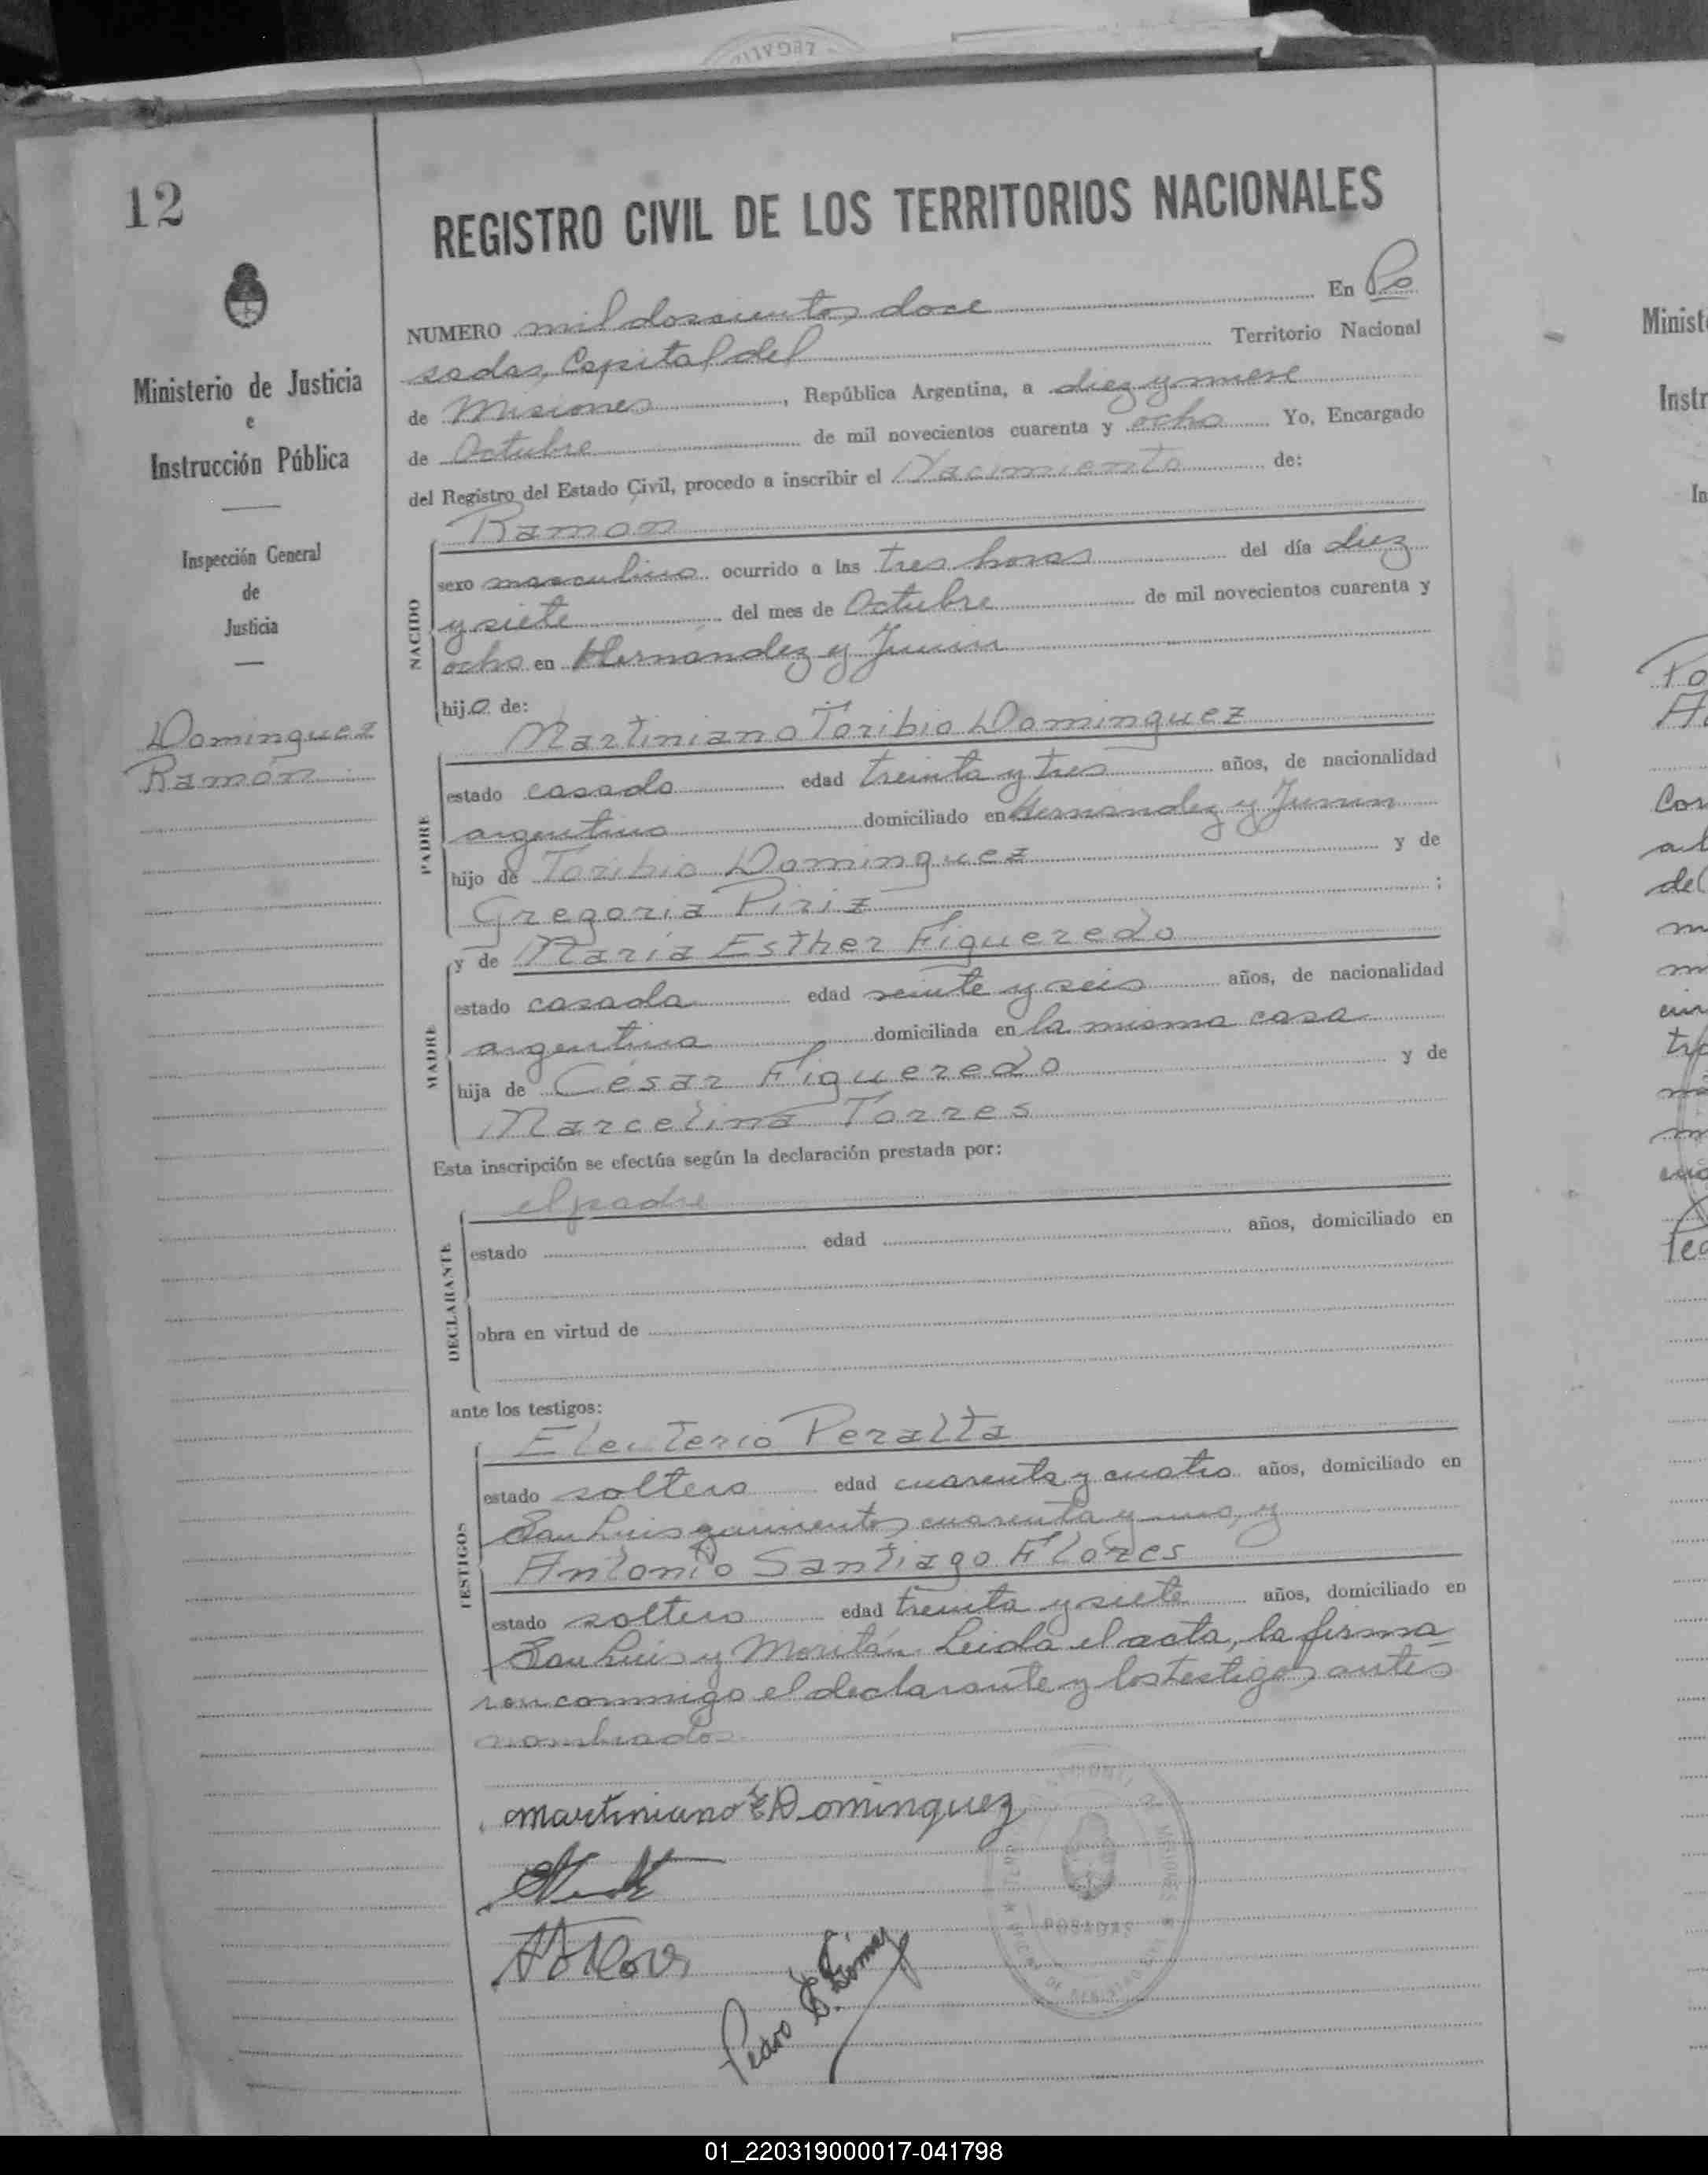 LEGALI
12
REGISTRO CIVIL DE LOS TERRITORIOS NACIONALES
NUMERO mil doscientos doce En Po
sadas, Capital del Territorio Nacional
de Misiones, República Argentina, a diez y nueve
de Octubre de mil novecientos cuarenta y ocho Yo, Encargado
del Registro del Estado Civil, procedo a inscribir el Nacimiento de:
Ramón
NACIDO
sexo masculino ocurrido a las tres horas del día diez
y siete del mes de Octubre de mil novecientos cuarenta y
ocho en Hernández y Junin
hijo de:
Martiniano Toribio Dominguez
PADRE
estado casado edad treinta y tres años, de nacionalidad
argentino domiciliado en Hernández y Junin
hijo de Toribio Dominguez y de
Gregoria Piriz;
y de Maria Esther Figueredo
MADRE
estado casada edad veinte y seis años, de nacionalidad
argentina domiciliada en la misma casa
hija de César Figueredo y de
Marcelina Torres
Esta inscripción se efectúa según la declaración prestada por:
el padre
DECLARANTE
estado edad años, domiciliado en
obra en virtud de
ante los testigos:
Eleuterio Peralta
TESTIGOS
estado soltero edad cuarenta y cuatro años, domiciliado en
San Luis quinientos cuarenta y uno, y
Antonio Santiago Flores
estado soltero edad treinta y siete años, domiciliado en
San Luis y Moritán. Leida el acta, la firma
ron conmigo el declarante y los testigos antes
nombrados.
Martiniano T Dominguez
Pedro Gómez
POSADAS
MISIONES
Ministerio de Justicia
e
Instrucción Pública
Inspección General
de
Justicia
Dominguez
Ramón
Minist
Instr
In
01_220319000017-041798